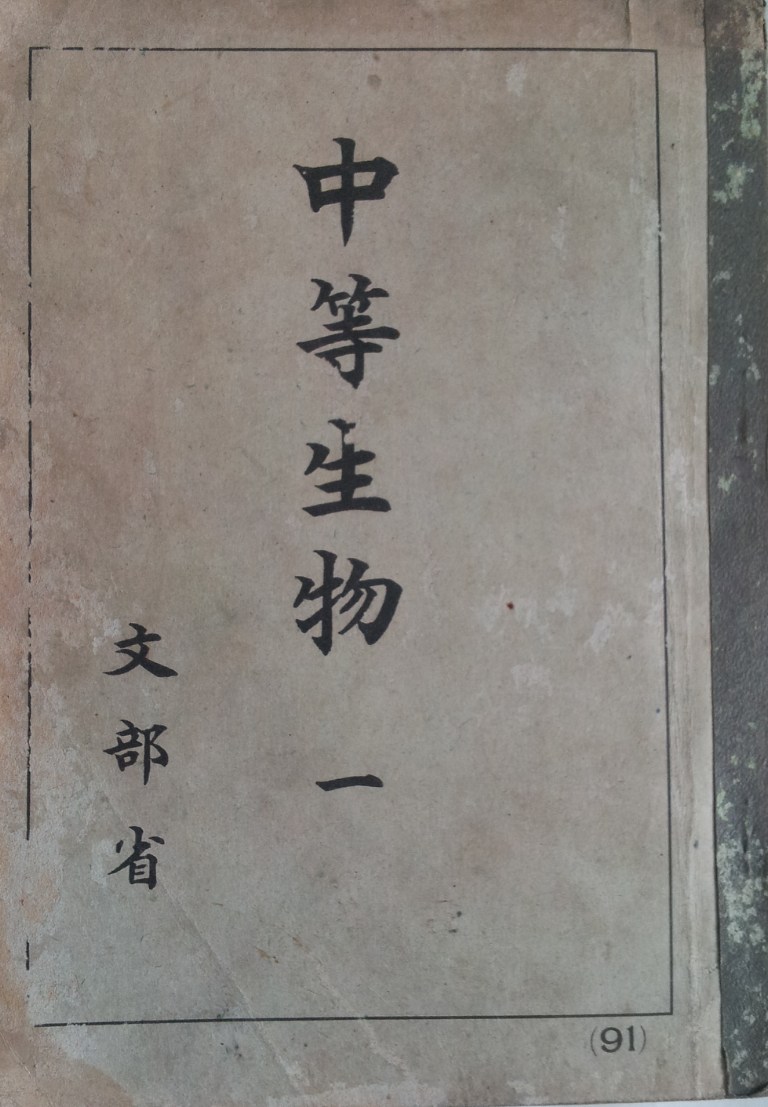 中等生物 一
文部省
(91)